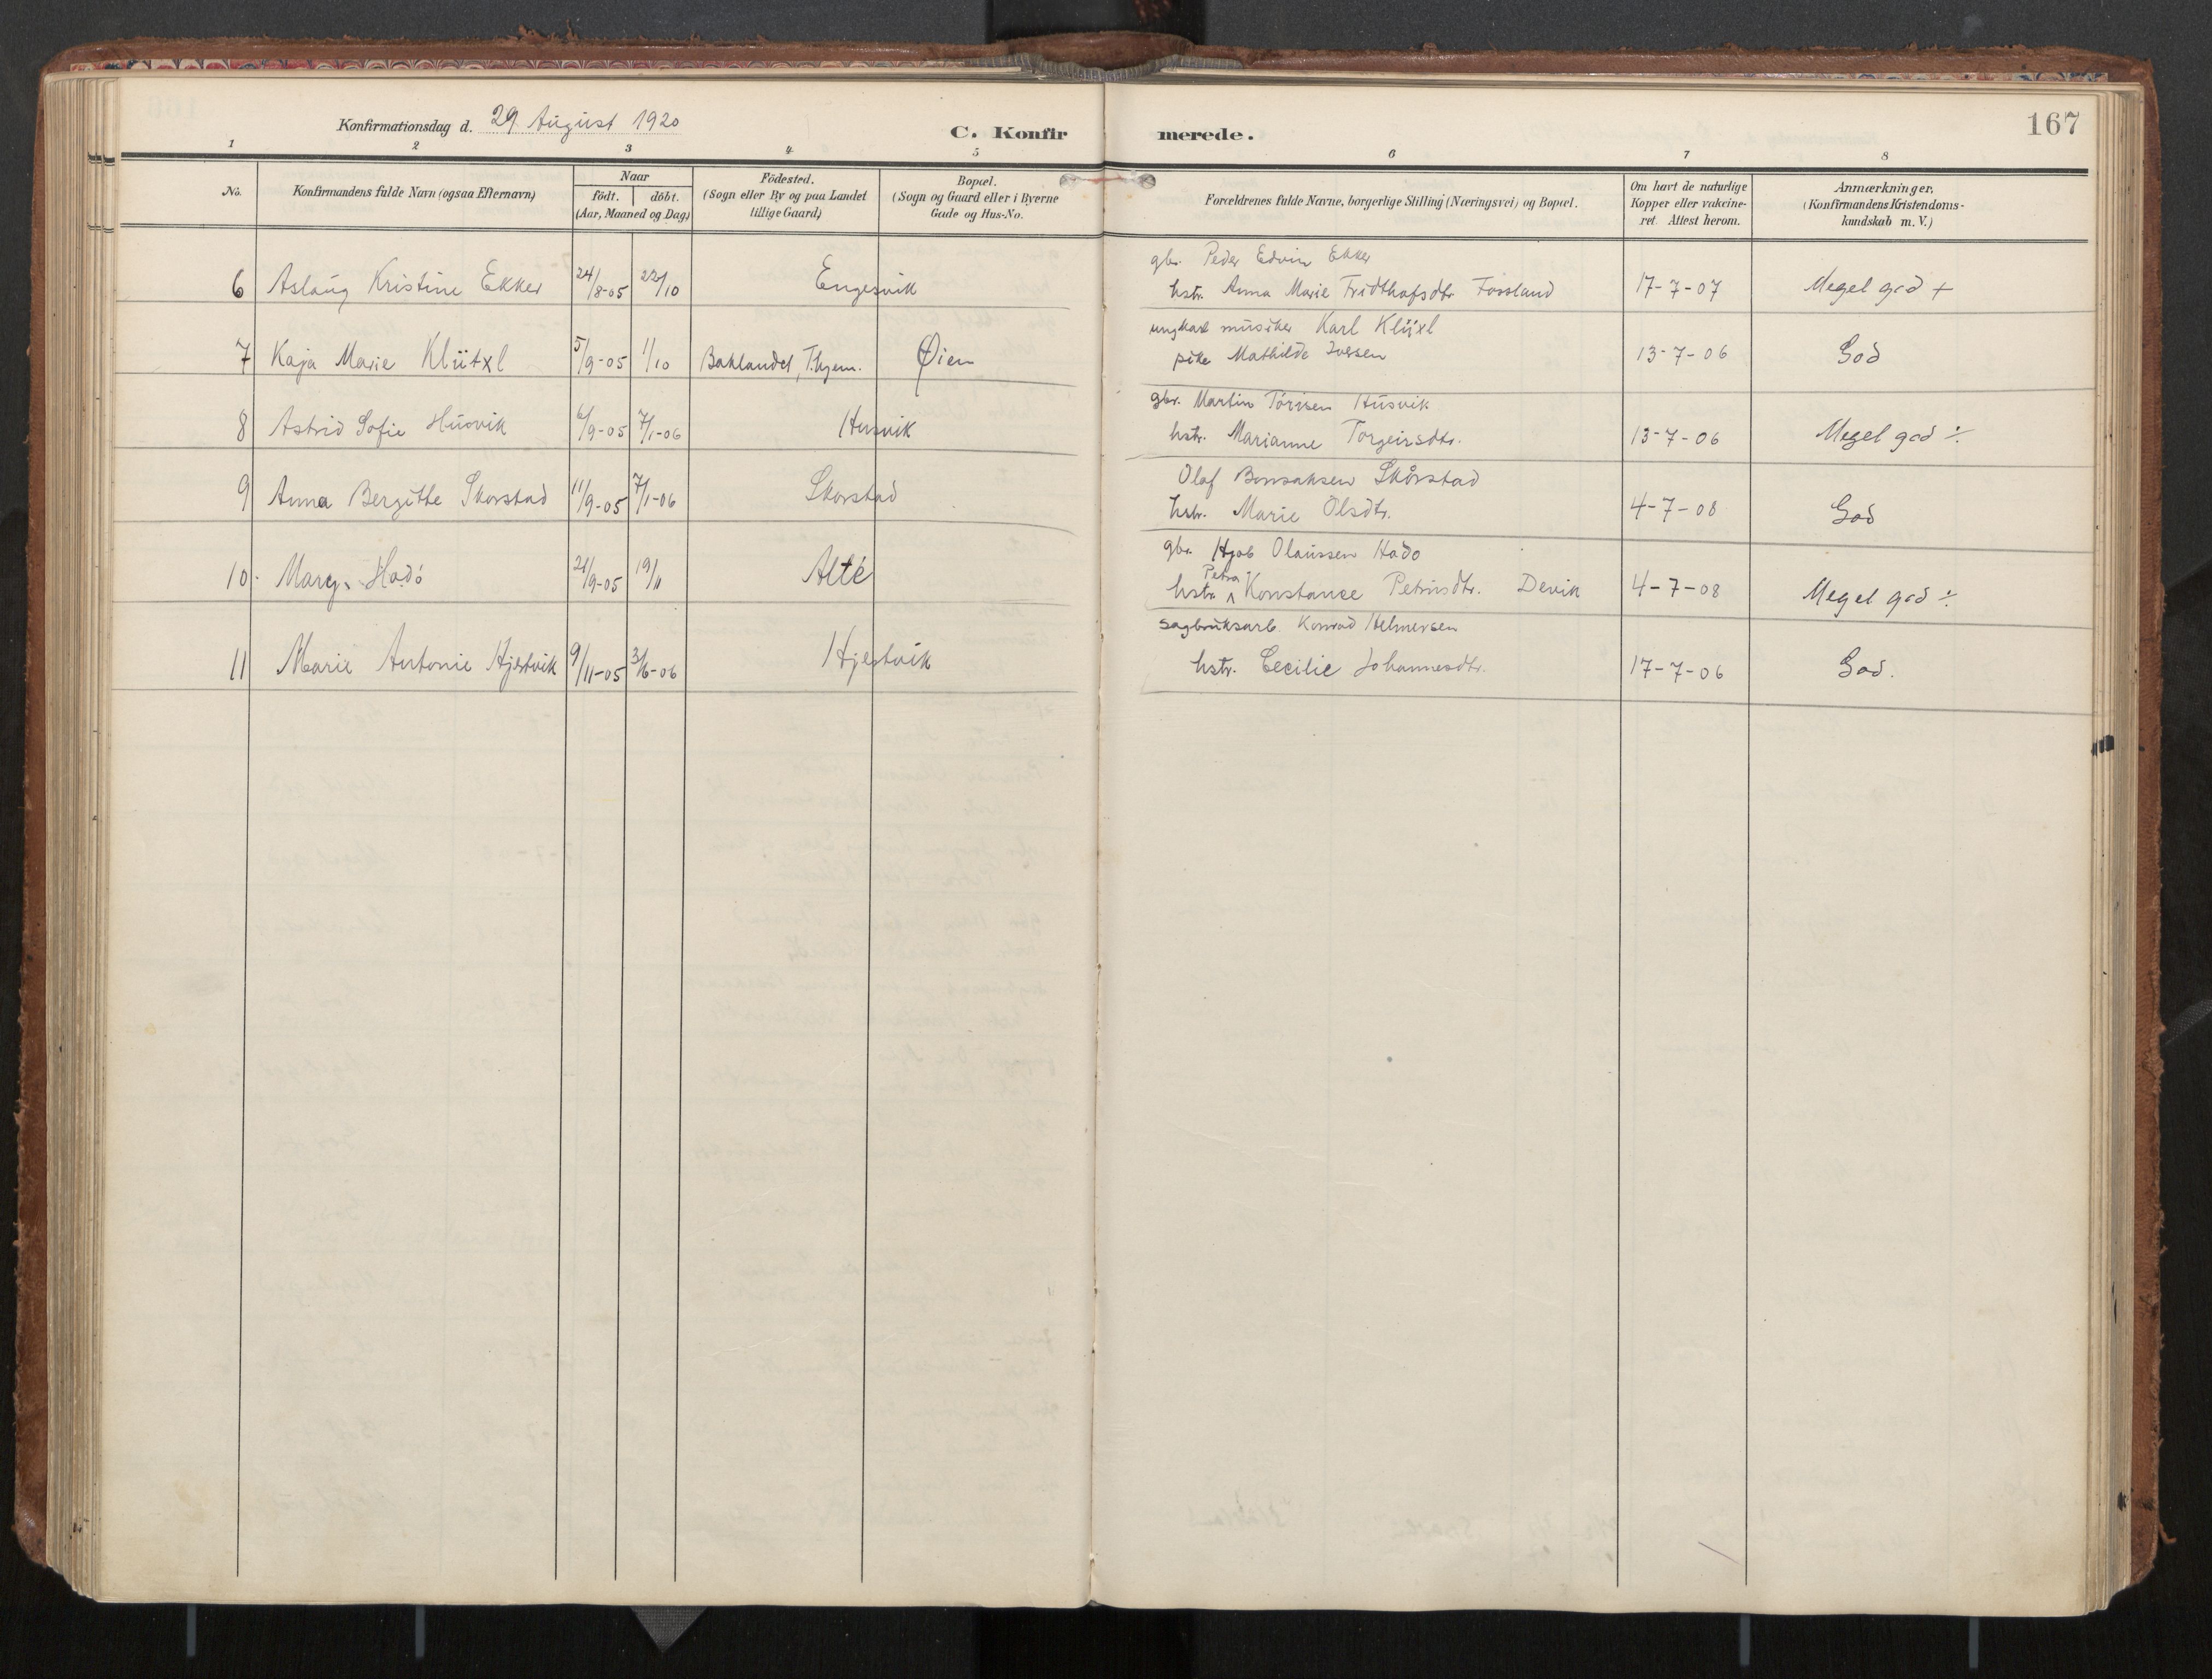 Konfirmationsdag d. 29 August 1920
C. Konfirmerede.
167
1 2 3 4 5 6 7 8
No.
Konfirmandens fulde Navn (ogsaa Efternavn)
Naar
födt. döbt.
(Aar, Maaned og Dag)
Födested.
(Sogn eller By og paa Landet
tillige Gaard)
Bopæl.
(Sogn og Gaard eller i Byerne
Gade og Hus-No.
Forældrenes fulde Navne, borgerlige Stilling (Næringsvei) og Bopæl.
Om havt de naturlige
Kopper eller vakcine-
ret. Attest herom.
Anmærkninger.
(Konfirmandens Kristendoms-
kundskab m. V.)
gbr. Peder Edvin Ekker
6 Aslaug Kristine Ekker 24/8-05 22/10 Engesvik hstr. Anna Marie Fridthofsdtr. Fossland 17-7-07 Meget god +
ungkarl musiker Karl Klüxl
7 Kaja Marie Klütxl 5/9-05 1/10 Baklandet, T.hjem. Øien pike Mathilde Iversen 13-7-06 God
gbr. Martin Törrisen Husvik
8 Astrid Sofie Husvik 6/9-05 7/1-06 Husvik hstr. Marianne Torgeirsdtr. 13-7-06 Meget god ÷
Olaf Bonsaksen Skårstad
9 Anna Bergitte Skorstad 11/9-05 7/1-06 Skorstad hstr. Marie Olsdtr. 4-7-08 God
gbr. Olaussen Hadö
Petra
10. Mary Hadö 21/9-05 19/11 Alte hstr. Konstance Petrusdtr. Devik 4-7-08 Meget god ÷
sagbruksarb. Konrad Helmersen
11 Marie Antonie Hjertvik 9/11-05 3/6-06 Hjertvik hstr. Cecilie Johannesdtr. 17-7-06 God.